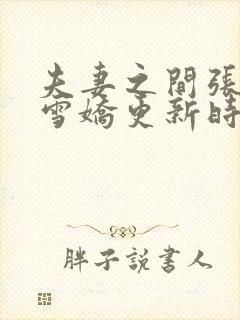 夫妻之間張
雪嬌更新時
胖子說書人